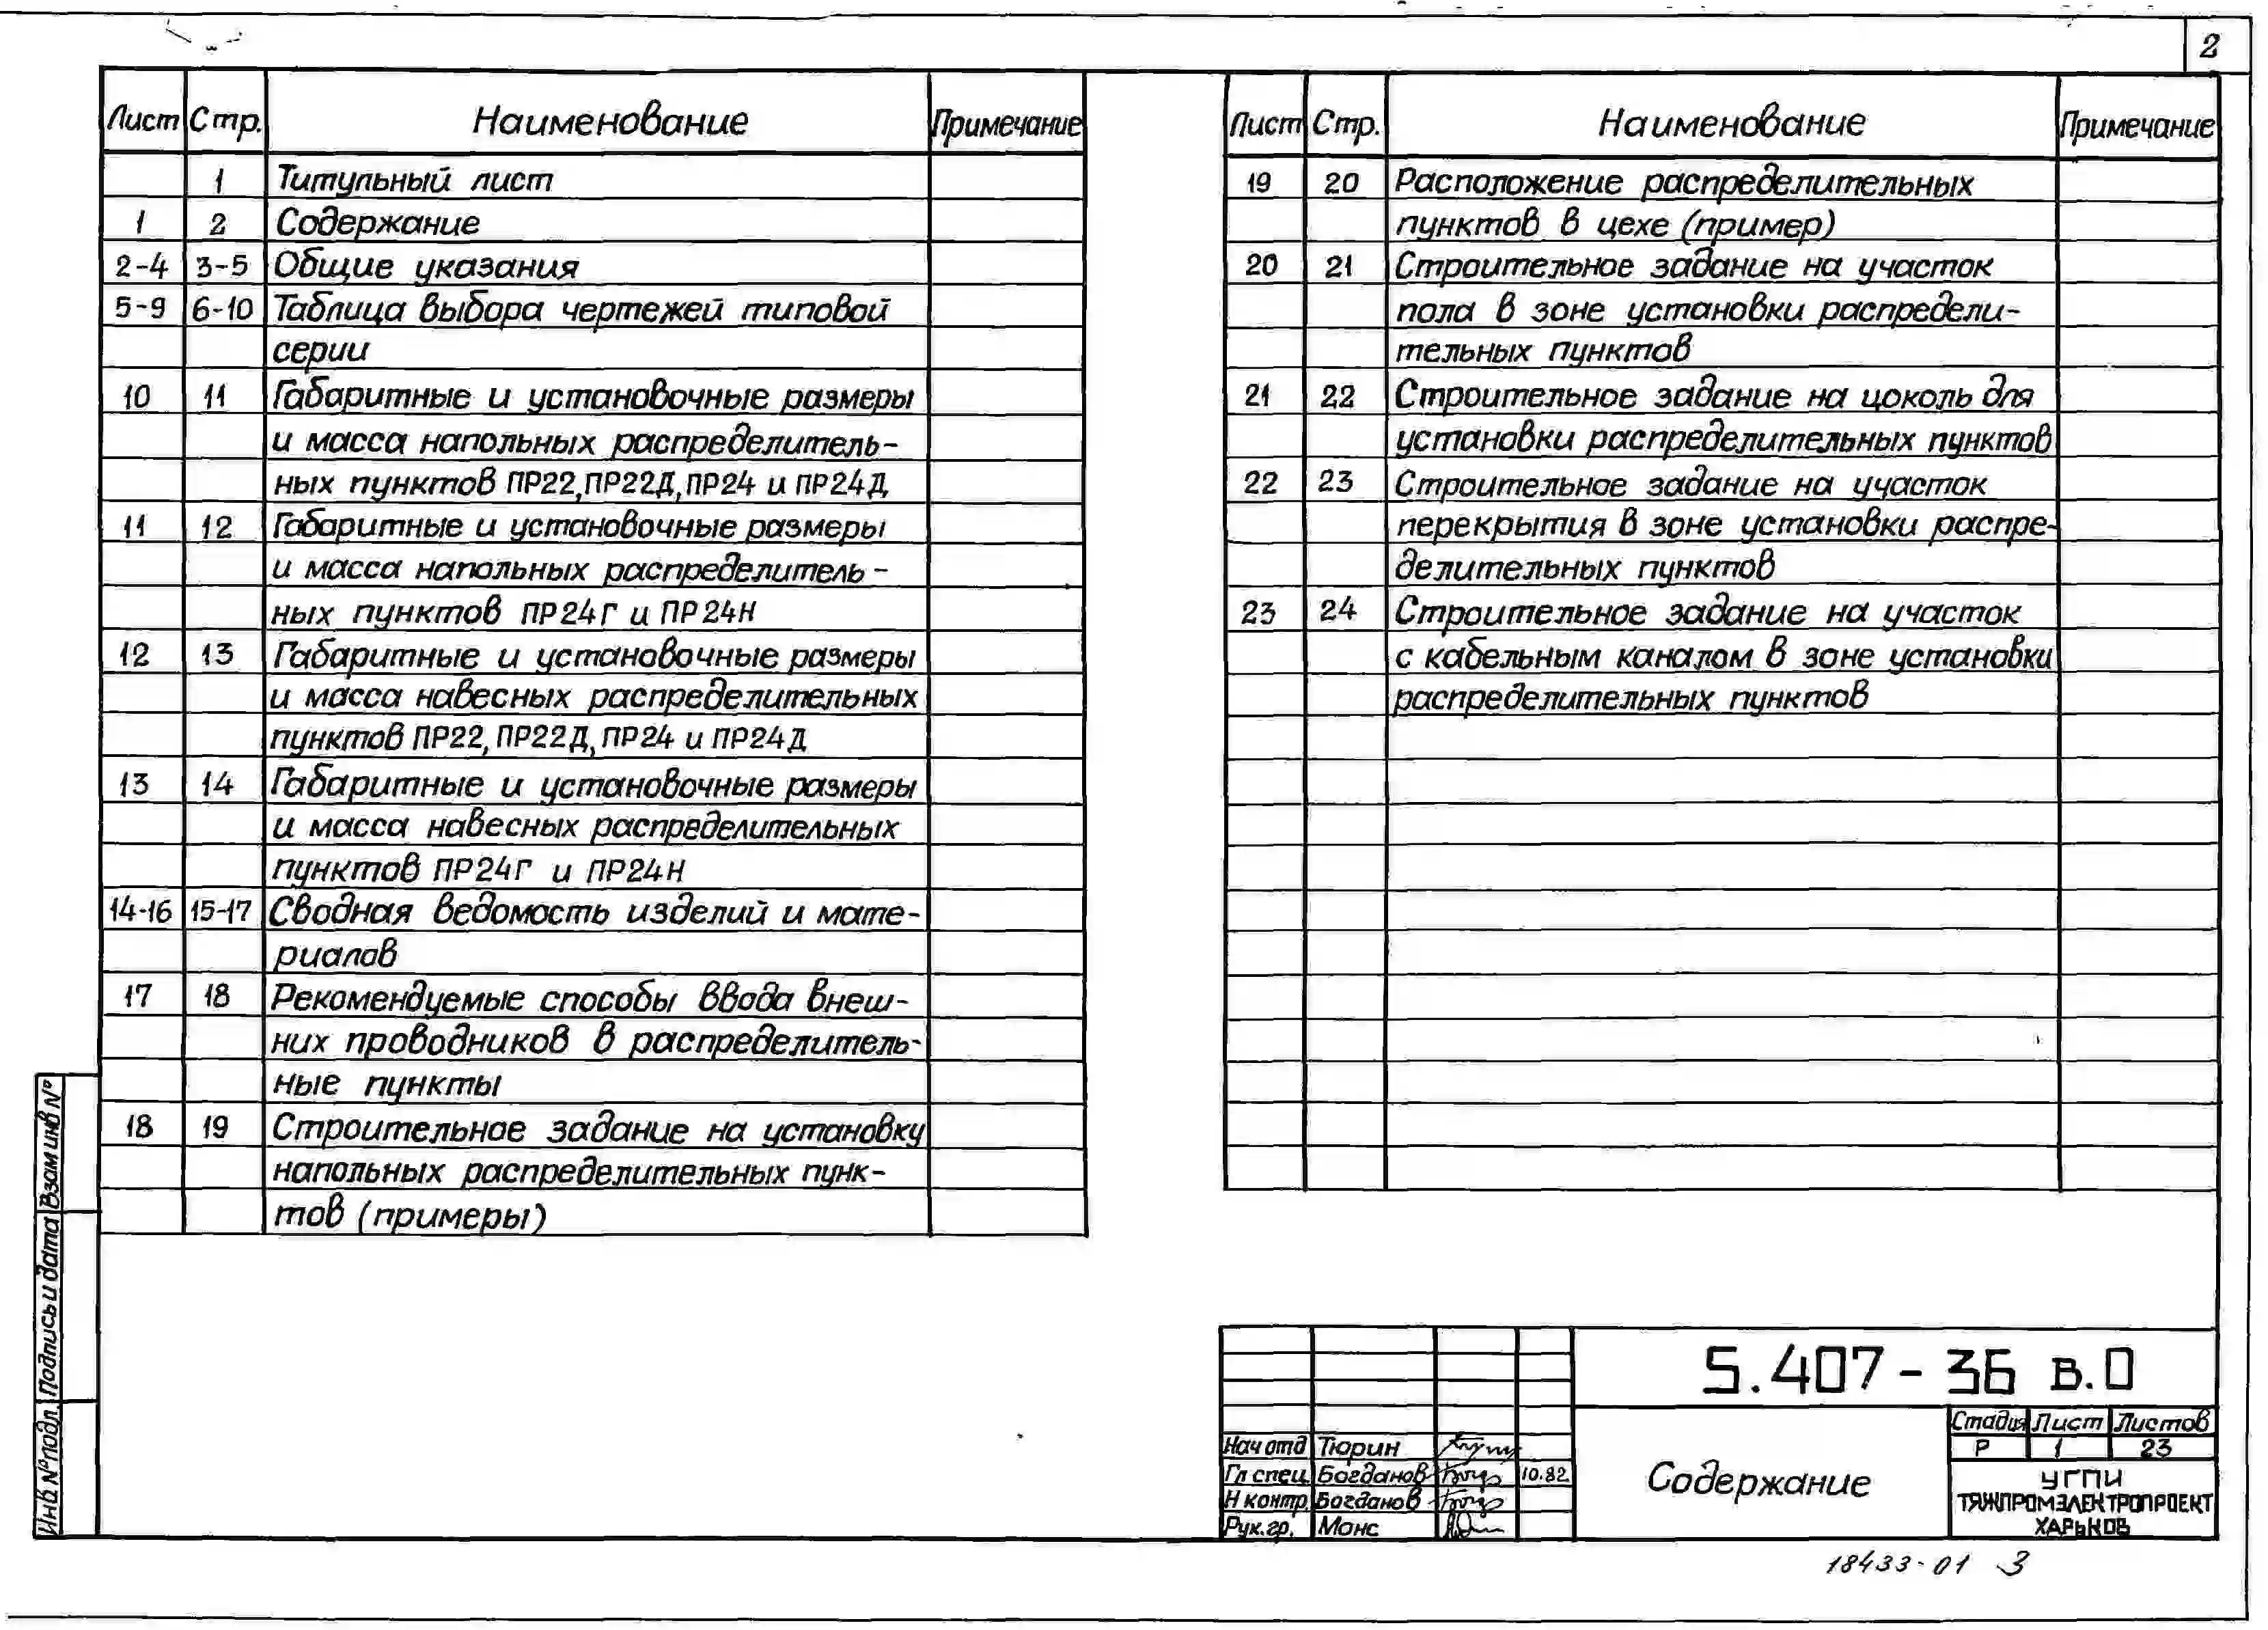 2
Лист Стр. Наименование Примечание
1 Титульный лист
1 2 Содержание
2-4 3-5 Общие указания
5-9 6-10 Таблица выбора чертежей типовой
серии
10 11 Габаритные и установочные размеры
и масса напольных распределитель-
ных пунктов ПР22, ПР22Д, ПР24 и ПР24Д
11 12 Габаритные и установочные размеры
и масса напольных распределитель-
ных пунктов ПР24Г и ПР24Н
12 13 Габаритные и установочные размеры
и масса навесных распределительных
пунктов ПР22, ПР22Д, ПР24 и ПР24Д
13 14 Габаритные и установочные размеры
и масса навесных распределительных
пунктов ПР24Г и ПР24Н
14-16 15-17 Сводная ведомость изделий и мате-
риалов
17 18 Рекомендуемые способы ввода внеш-
них проводников в распределитель-
ные пункты
18 19 Строительное задание на установку
напольных распределительных пунк-
тов (примеры)
Лист Стр. Наименование Примечание
19 20 Расположение распределительных
пунктов в цехе (пример)
20 21 Строительное задание на участок
пола в зоне установки распредели-
тельных пунктов
21 22 Строительное задание на цоколь для
установки распределительных пунктов
22 23 Строительное задание на участок
перекрытия в зоне установки распре-
делительных пунктов
23 24 Строительное задание на участок
с кабельным каналом в зоне установки
распределительных пунктов
Взам инв №
Подпись и дата
Инв № подл.
5.407-36 в.0
Стадия Лист Листов
Р 1 23
Нач отд Тюрин
Гл спец Богданов 10.82
Н контр. Богданов
Рук. гр. Монс
Содержание
УГПИ
ТЯЖПРОМЭЛЕКТРОПРОЕКТ
ХАРЬКОВ
18433-01 3